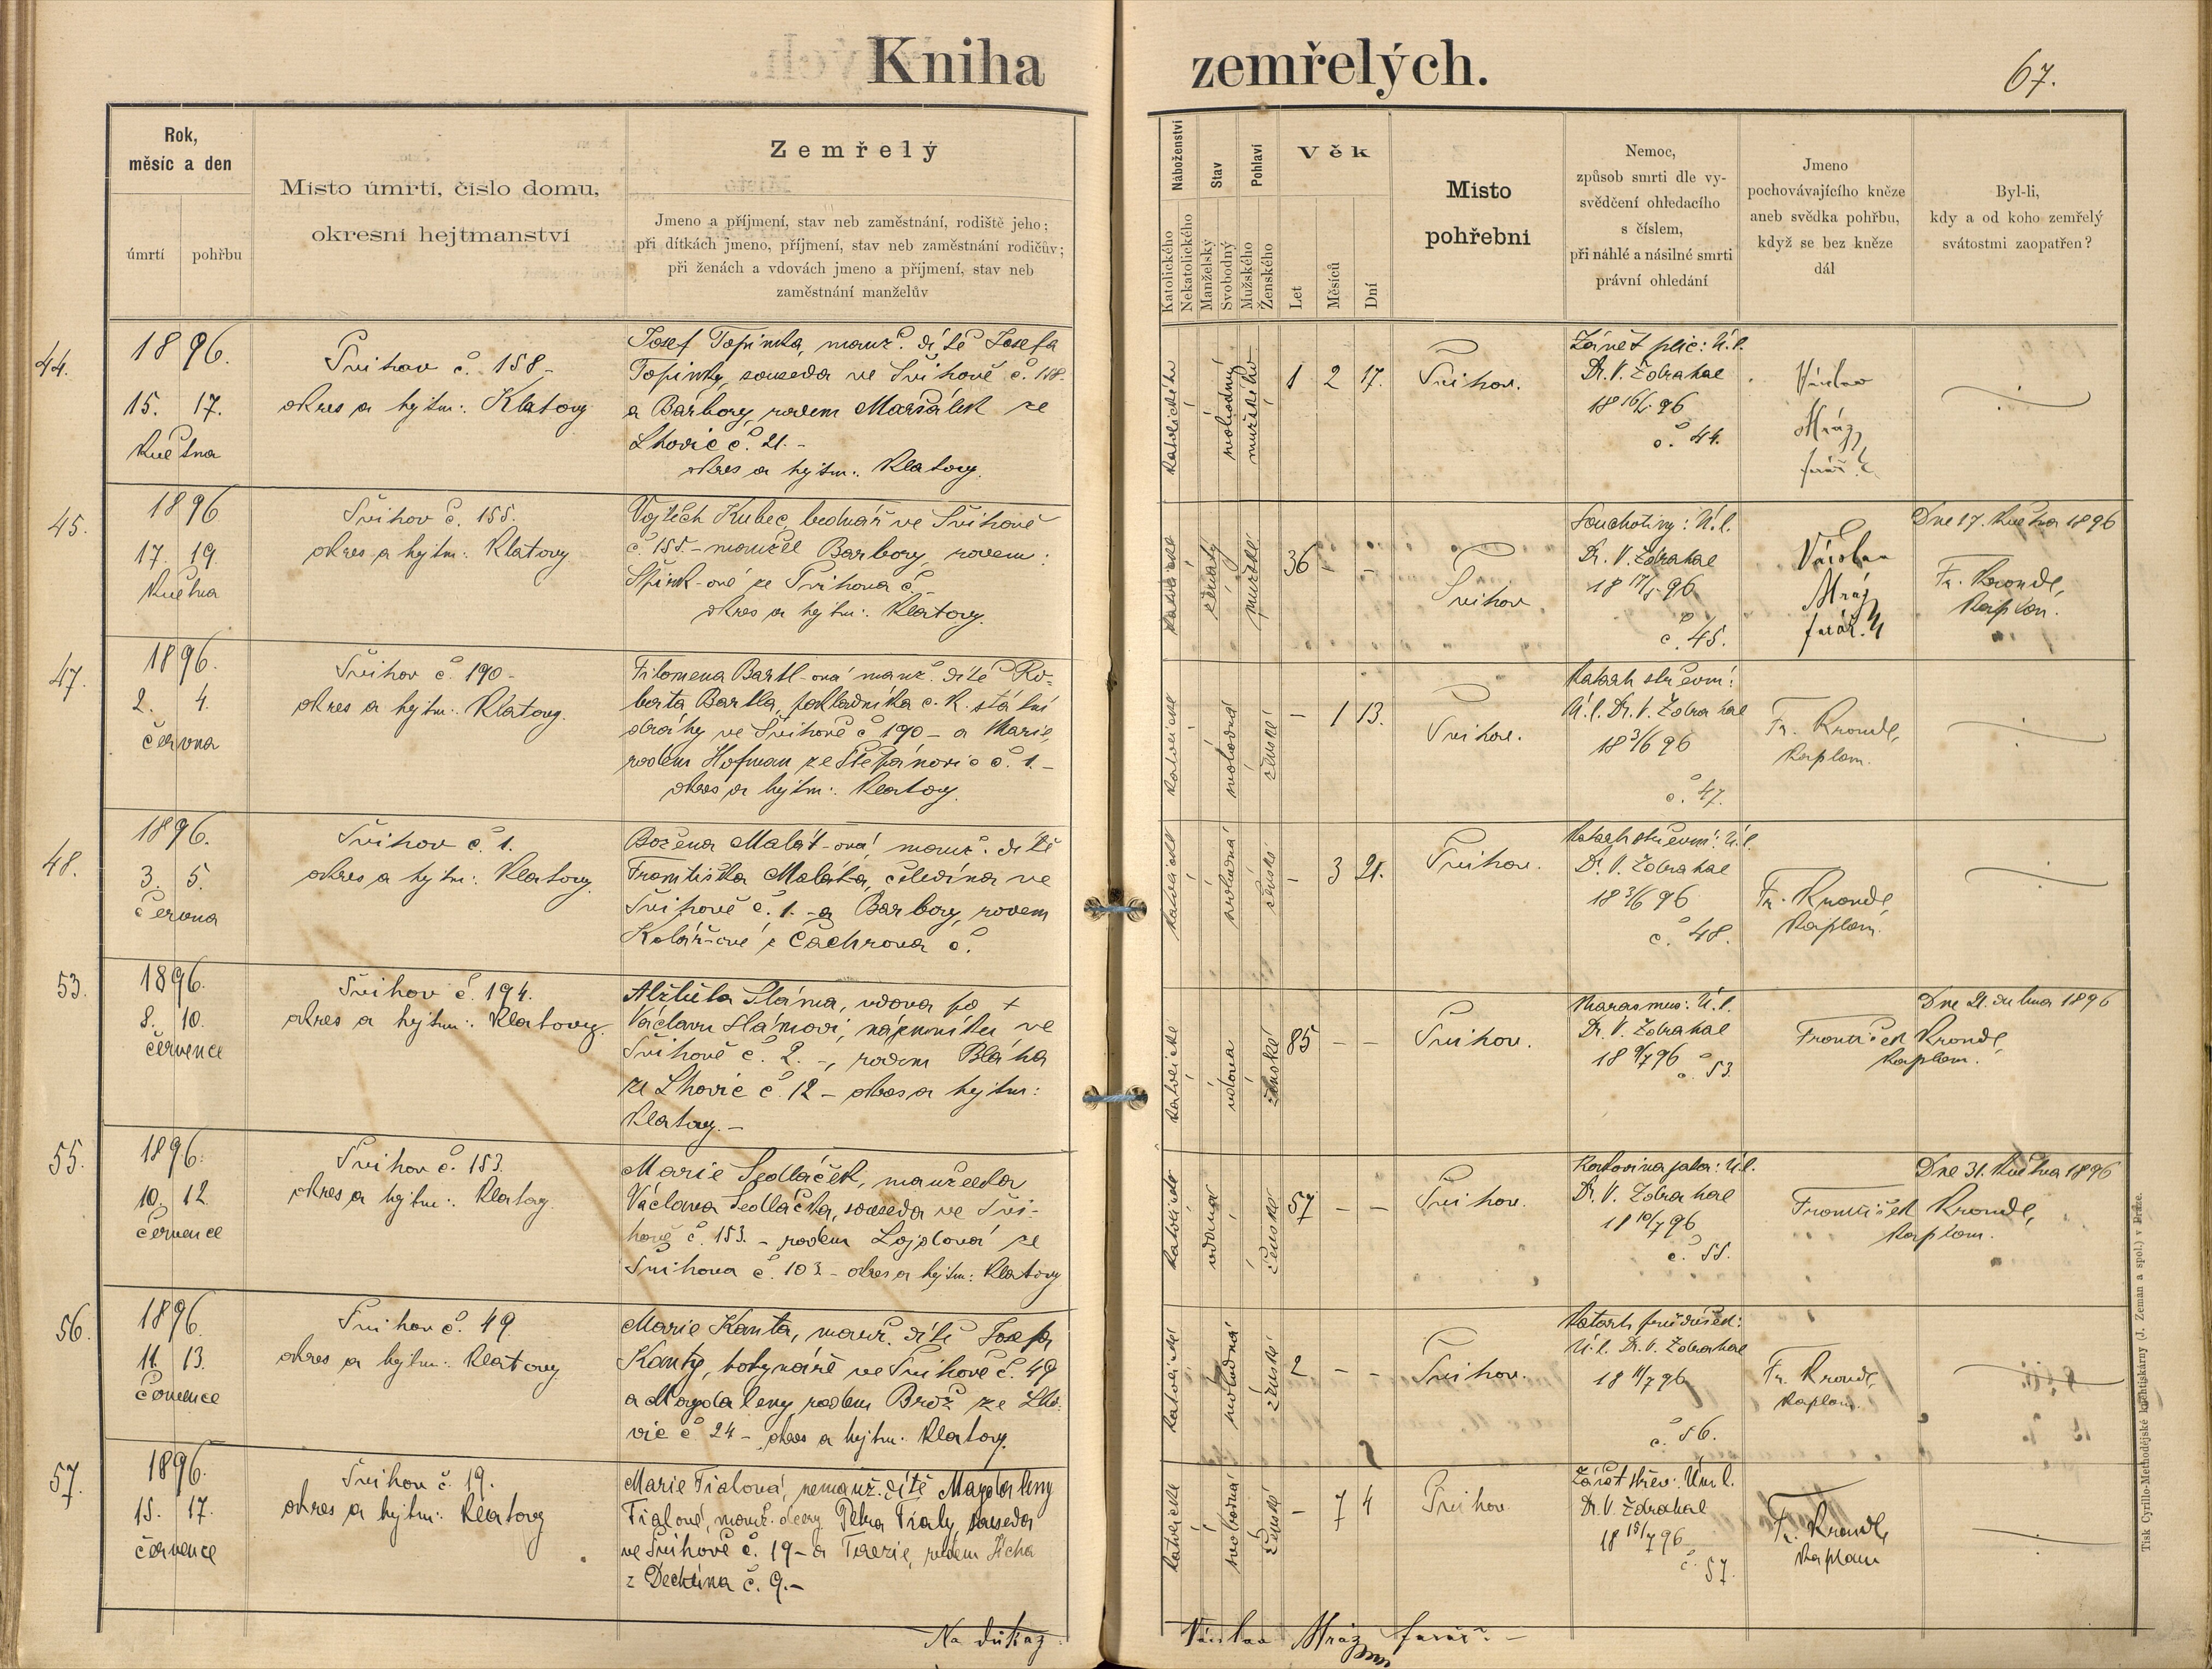 Kniha zemřelých.
67.
Rok,
měsíc a den
úmrtí
pohřbu
Místo úmrtí, číslo domu,
okresní hejtmanství
Zemřelý
Jmeno a příjmení, stav neb zaměstnání, rodiště jeho;
při dítkách jmeno, příjmení, stav neb zaměstnání rodičův;
při ženách a vdovách jmeno a příjmení, stav neb
zaměstnání manželův
Náboženství
Katolického
Nekatolického
Stav
Manželský
Svobodný
Pohlaví
Mužského
Ženského
Věk
Let
Měsíců
Dní
Místo
pohřební
Nemoc,
způsob smrti dle vy-
svědčení ohledacího
s číslem,
při náhlé a násilné smrti
právní ohledání
Jmeno
pochovávajícího kněze
aneb svědka pohřbu,
když se bez kněze
dál
Byl-li,
kdy a od koho zemřelý
svátostmi zaopatřen?
44.
1896.
15. 17.
Května
Švihov č. 158 –
okres a hejtm: Klatovy
Josef Topinka, manž. dítě Josefa
Topinky, souseda ve Švihově č. 158.
a Barbory, rodem Maršálek ze
Lhovic č. 21. –
okres a hejtm: Klatovy.
katolického
svobodný
mužského
1 2 17.
Švihov.
Zánět plic: Ú.l.
Dr. V. Zdrahal
18 16/5 96
č. 44.
Václav
Mráz
farář
45.
1896
17. 19.
Května
Švihov č. 155.
okres a hejtm: Klatovy
Vojtěch Kubec, bednář ve Švihově
č. 155. – manžel Barbory, rodem:
ze Švihova č. –
okres a hejtm: Klatovy.
katolické
ženatý
mužské
36 – –
Švihov
Souchotiny: Ú.l.
Dr. V. Zdrahal
18 17/5 96
č. 45.
Václav
Mráz
farář
Dne 17. Května 1896
Fr. Krondl,
Kaplan.
47.
1896.
2. 4.
června
Švihov č. 190 –
okres a hejtm: Klatovy.
Filomena Bartl-ová manž. dítě Ro-
berta Bartla, pokladníka c. k. státní
dráhy ve Švihově č 190 – a Marie,
rodem Hofman ze Štěpánovic č. 1. –
okres a hejtm: Klatovy.
katolické
svobodná
ženské
– 1 13.
Švihov.
Katarh střevní:
Ú.l. Dr. V. Zdrahal
18 3/6 96
č. 47.
Fr. Krondl,
Kaplan.
48.
1896.
3. 5.
Června
Švihov č. 1.
okres a hejtm: Klatovy.
Božena Malát-ová manž. dítě
Františka Maláta, čeledína ve
Švihově č. 1. – a Barbory, rodem
Kolář-ové z Čachrova č.
katolické
svobodná
ženské
– 3 21.
Švihov.
Katarh střevní: Ú.l.
Dr. V. Zdrahal
18 3/6 96
č. 48.
Fr. Krondl,
Kaplan.
53.
1896.
8. 10.
července
Švihov č. 194.
okres a hejtm: Klatovy.
Alžběta Sláma, vdova po +
Václavu Slámovi, nájemníku ve
Švihově č. 2. –, rodem Bláha
ze Lhovic č. 12 – okres a hejtm:
Klatovy. –
katolické
vdova
ženské
85 – –
Švihov.
Marasmus: Ú.l.
Dr. V. Zdrahal
18 9/7 96
č. 53.
Dne 21. dubna 1896
František Krondl,
Kaplan.
55.
1896.
10. 12.
Července
Švihov č. 153.
okres a hejtm: Klatovy
Marie Sedláček, manželka
Václava Sedláčka, souseda ve Švi-
hově č. 153. – rodem Lojdová ze
Švihova č. 103 – okres a hejtm: Klatovy
katolické
ženské
57 – –
Švihov.
Rakovina jater: Ú.l.
Dr. V. Zdrahal
18 10/7 96
č. 55.
Dne 31. Května 1896
František Krondl,
Kaplan.
56.
1896.
11. 13.
Července
Švihov č. 49.
okres a hejtm: Klatovy
Marie Kanta, manž. dítě Josefa
Kanty, hodynáře ve Švihově č. 49
a Magdaleny rodem Brož ze Lho-
vic č. 24 – okres a hejtm: Klatovy.
katolické
svobodná
ženské
2 – –
Švihov.
Katarh průdušek:
Ú.l. Dr. V. Zdrahal
18 11/7 96
č. 56.
Fr. Krondl,
Kaplan.
57.
1896.
15. 17.
července
Švihov č. 19.
okres a hejtm: Klatovy
Marie Fialová, nemanž. dítě Magdaleny
Fialové, manž. dcery Petra Fialy, souseda
ve Švihově č. 19 – a Terezie, rodem Jícha
z Dechtína č. 9. –
katolické
svobodná
ženské
– 7 4
Švihov.
Zánět střev: Úm.l.
Dr. V. Zdrahal
18 15/7 96
č. 57.
Fr. Krondl,
Kaplan
Na důkaz
Václav Mráz farář. –
Tisk Cyrillo-Methodějské knihtiskárny (J. Zeman a spol.) v Praze.